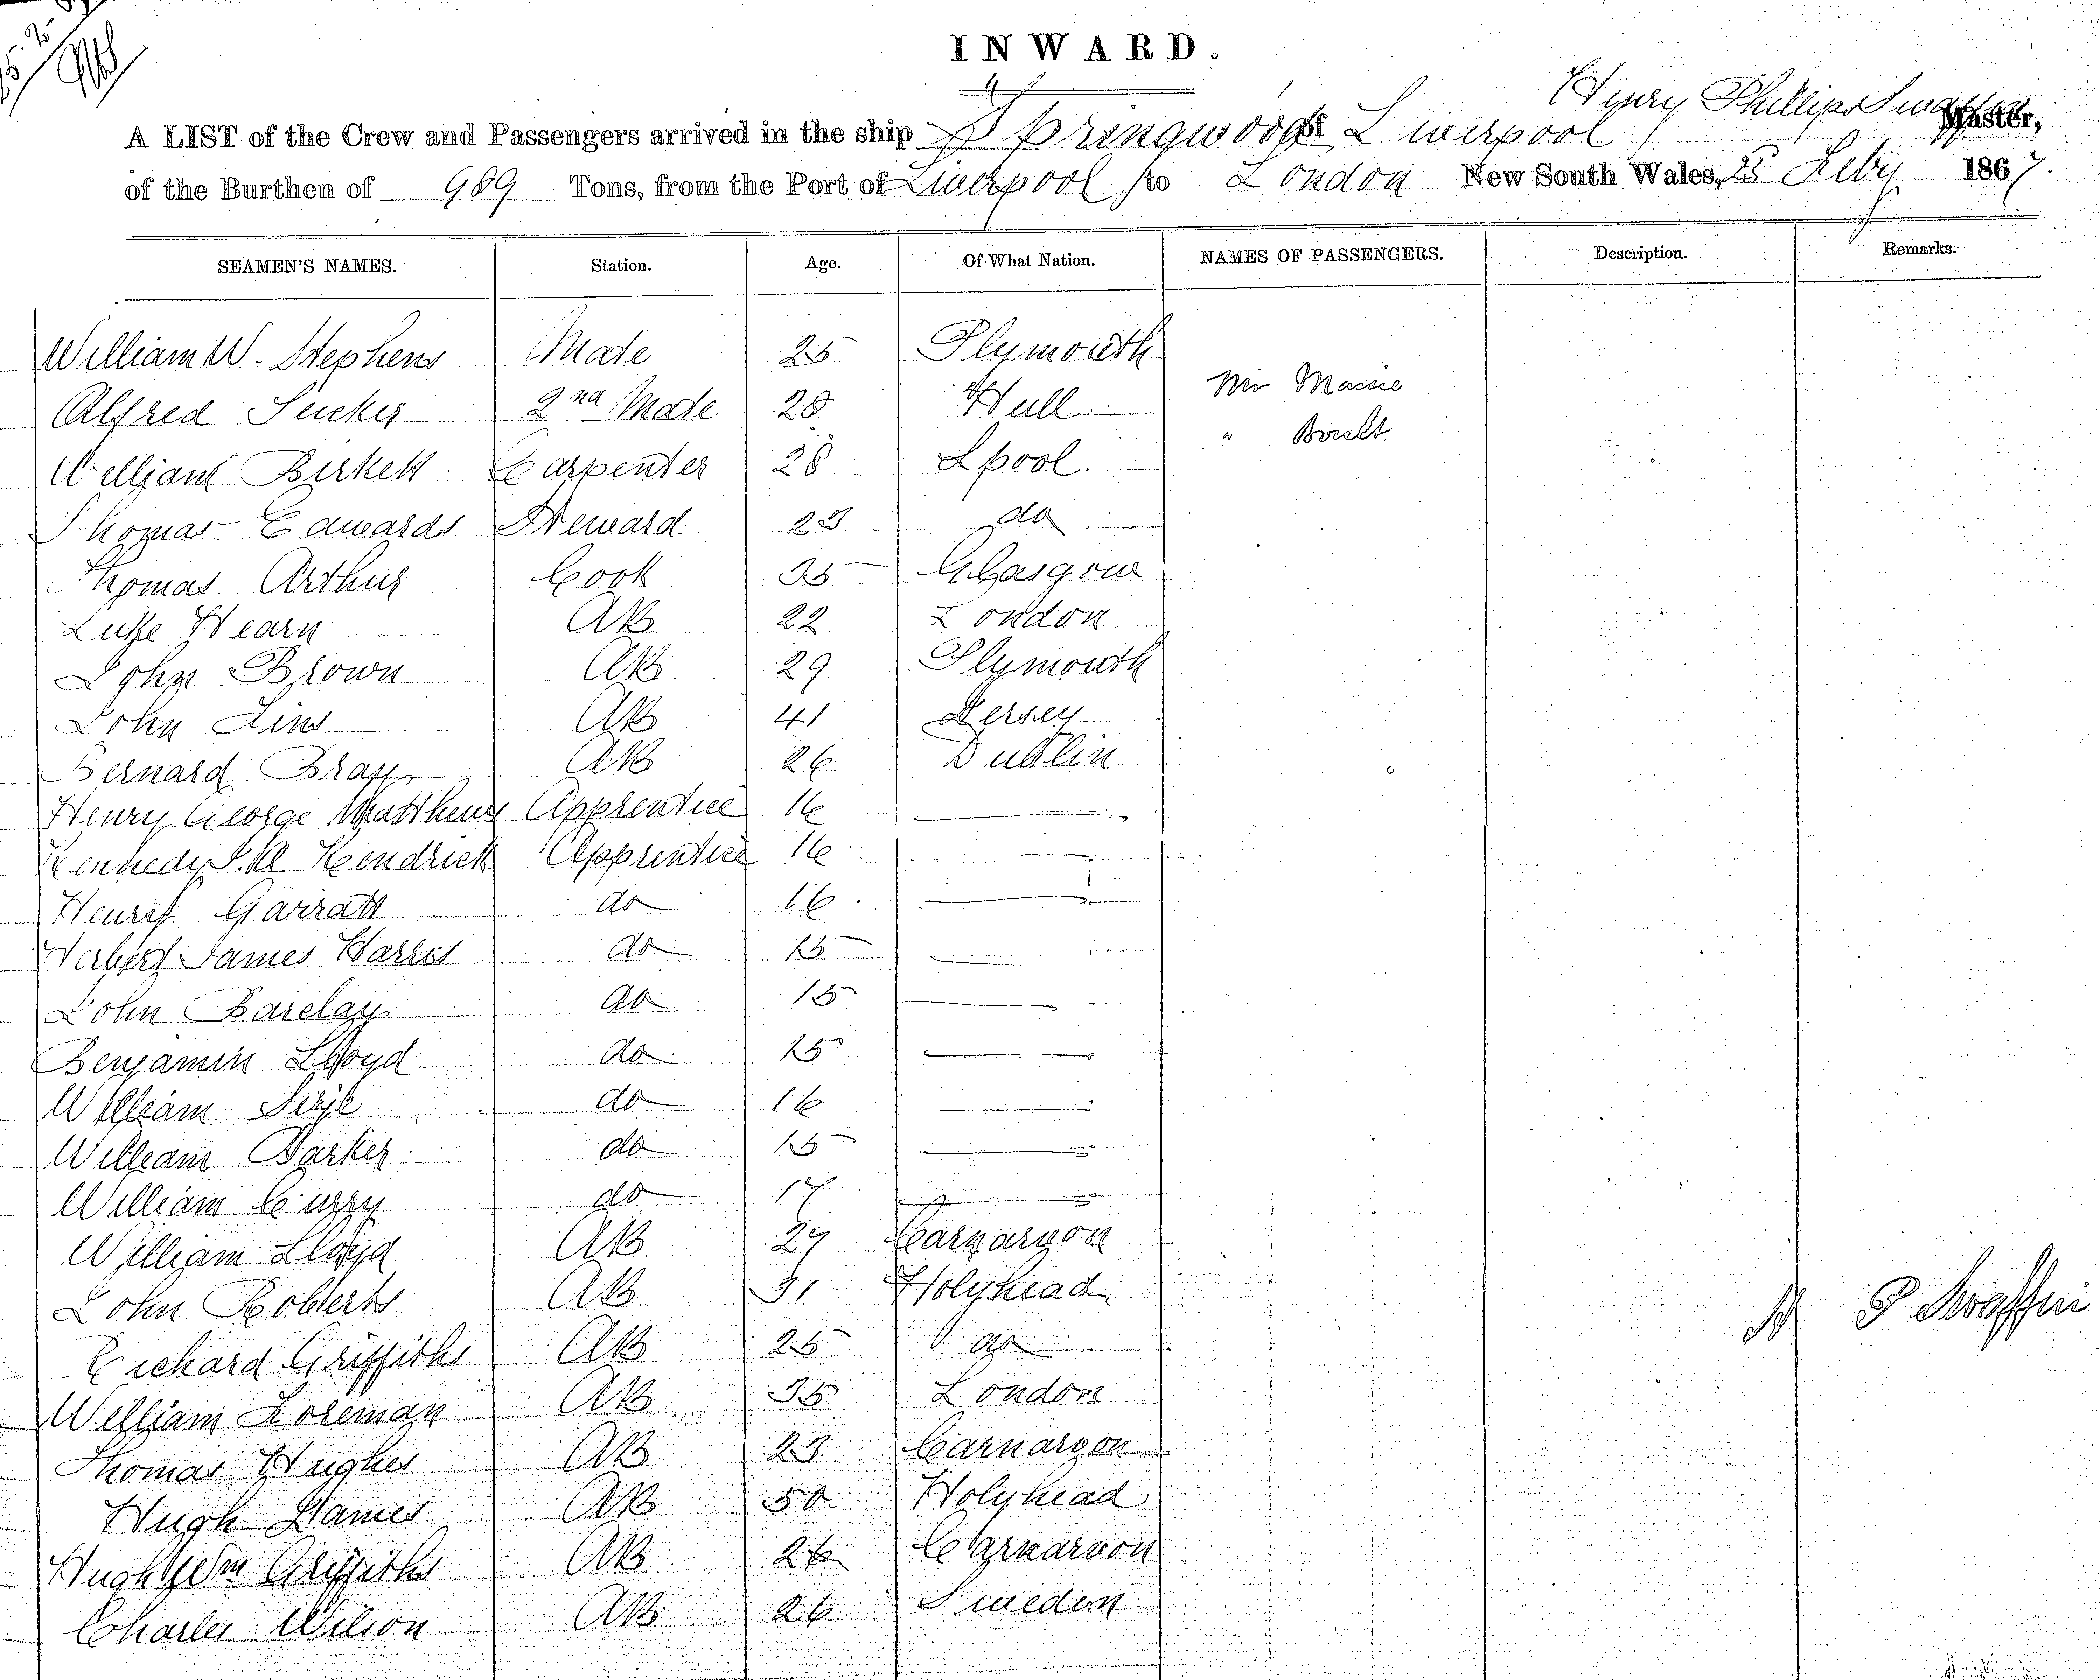 INWARD.
A LIST of the Crew and Passengers arrived in the ship Springwood of Liverpool Henry Phillips Swaffin Master,
of the Burthen of 989 Tons, from the Port of Liverpool to London New South Wales, 25 Feby 1867.
SEAMEN'S NAMES. Station. Age. Of What Nation. NAMES OF PASSENGERS. Description. Remarks.
William W. Stephens Mate 25 Plymouth
Mr Maine
Alfred 2nd Mate 28 Hull
"
William Birkett Carpenter 28 Lpool.
Thomas Edwards Steward 23 do
Thomas Arthur Cook 35 Glasgow
Luke Hearn AB 22 London
John Brown AB 29 Plymouth
John AB 41 Jersey
Bernard Bray AB 26 Dublin
Henry George Matthews Apprentice 16
Kennedy Kendrick Apprentice 16
Henry Garratt do 16
Herbert James Harris do 15
John Barclay do 15
Benjamin Lloyd do 15
William do 16
William Barker do 15
William Curry do 17
William Lloyd AB 27 Carnarvon
John Roberts AB 31 Holyhead
H P Swaffin
Richard Griffiths AB 25 do
William Loreman AB 35 London
Thomas Hughes AB 23 Carnarvon
Hugh James AB 50 Holyhead
Hugh Wm Griffiths AB 26 Carnarvon
Charles Wilson AB 26 Sweden